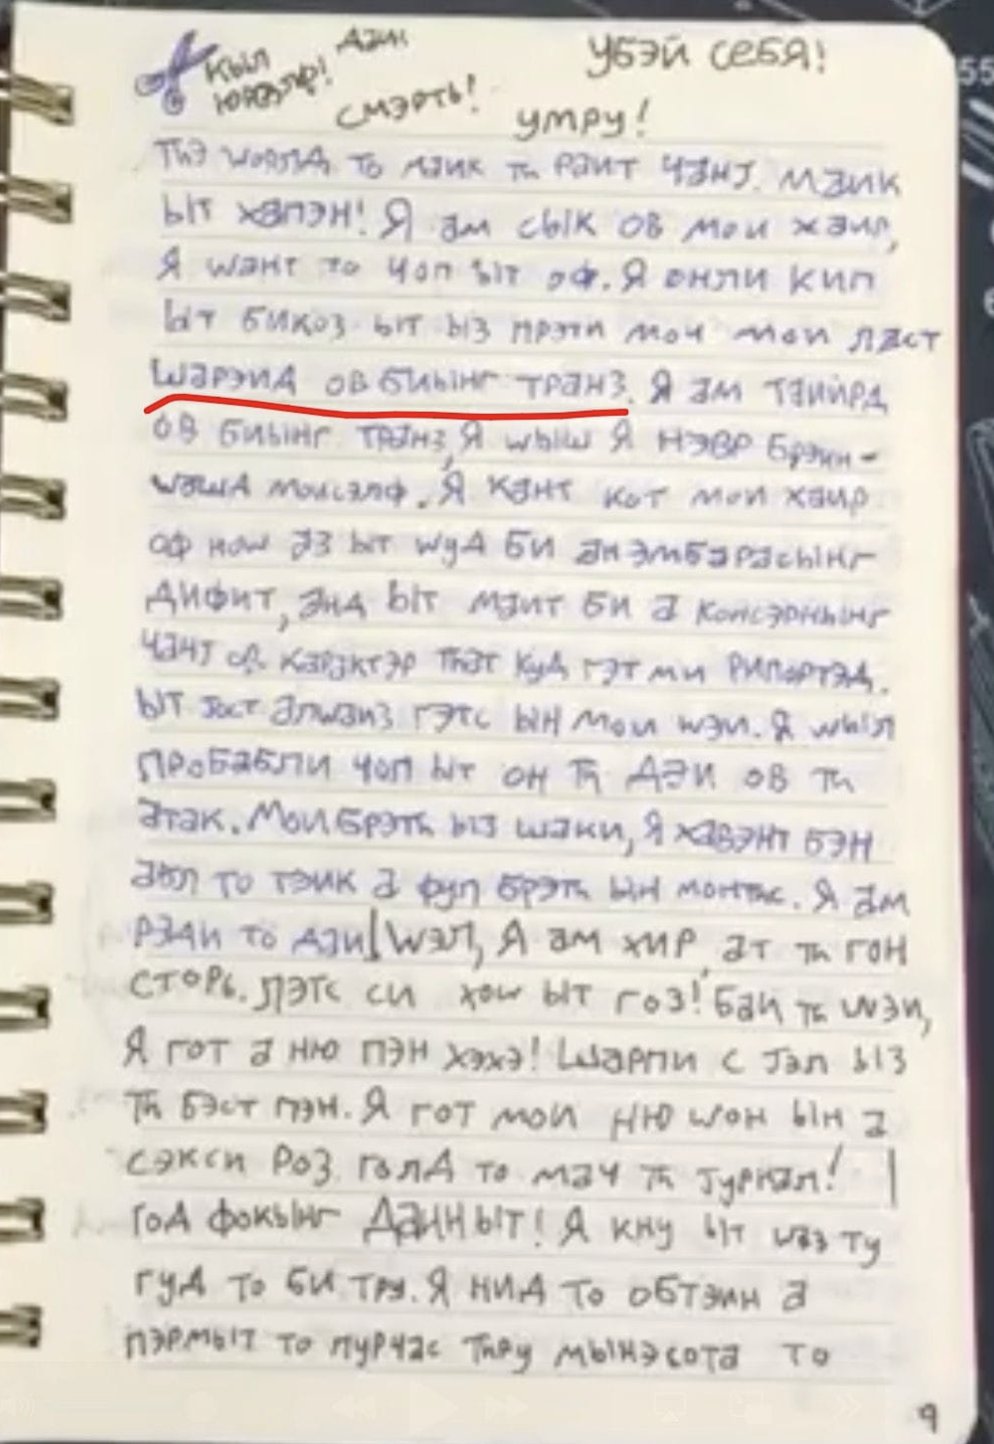 КЫЛ ДАИ! УБЭЙ СЕБЯ!
ЮРСЭЛФ! СМЭРТЬ! УМРУ!
ТҺЭ WОРЛД ТО МАИК ТҺ РАИТ ЧАНЈ. МАИК
ЫТ ХАПЭН! Я АМ СЫК ОВ МОИ ХАИР,
Я WАНТ ТО ЧОП ЫТ ОФ. Я ОНЛИ КИП
ЫТ БИКОЗ ЫТ ЫЗ ПРЭТИ МОЧ МОИ ЛАСТ
ШАРЭИД ОВ БИЫНГ ТРАНЗ. Я АМ ТАИЙРД
ОВ БИЫНГ ТРАНЗ, Я WЫШ Я НЭВР БРЭИН-
WАШД МОИСЭЛФ. Я КАНТ КОТ МОИ ХАИР
ОФ НОW АЗ ЫТ WУД БИ АН ЭМБАРАСЫНГ
ДИФИТ, АНД ЫТ МАИТ БИ А КОНСЭРНЫНГ
ЧАНЈ ОВ КАРАКТЭР ТҺАТ КУД ГЭТ МИ РИПОРТЭД.
ЫТ ЈОСТ АЛWАИЗ ГЭТС ЫН МОИ WЭИ. Я WЫЛ
ПРОБАБЛИ ЧОП ЫТ ОН ТҺ ДЭИ ОВ ТҺ
АТАК. МОИ БРЭТҺ ЫЗ ШАКИ, Я ХАВЭНТ БЭН
АБЛ ТО ТЭИК А ФУЛ БРЭТҺ ЫН МОНТҺС. Я АМ
РЭДИ ТО ДАИ! WЭЛ, Я АМ ХИР АТ ТҺ ГОН
СТОРЬ. ЛЭТС СИ ХОW ЫТ ГОЗ! БАИ ТҺ WЭИ,
Я ГОТ А НЮ ПЭН ХЭХЭ! ШАРПИ С ЈЭЛ ЫЗ
ТҺ БЭСТ ПЭН. Я ГОТ МОИ НЮ WОН ЫН А
СЭКСИ РОЗ ГОЛД ТО МАЧ ТҺ ЈУРНАЛ!
ГОД ФОКЫНГ ДАМН ЫТ! Я КНУ ЫТ WАЗ ТУ
ГУД ТО БИ ТРУ. Я НИД ТО ОБТЭИН А
ПЭРМЫТ ТО ПУРЧАС ТҺРУ МЫНЭСОТА ТО
9